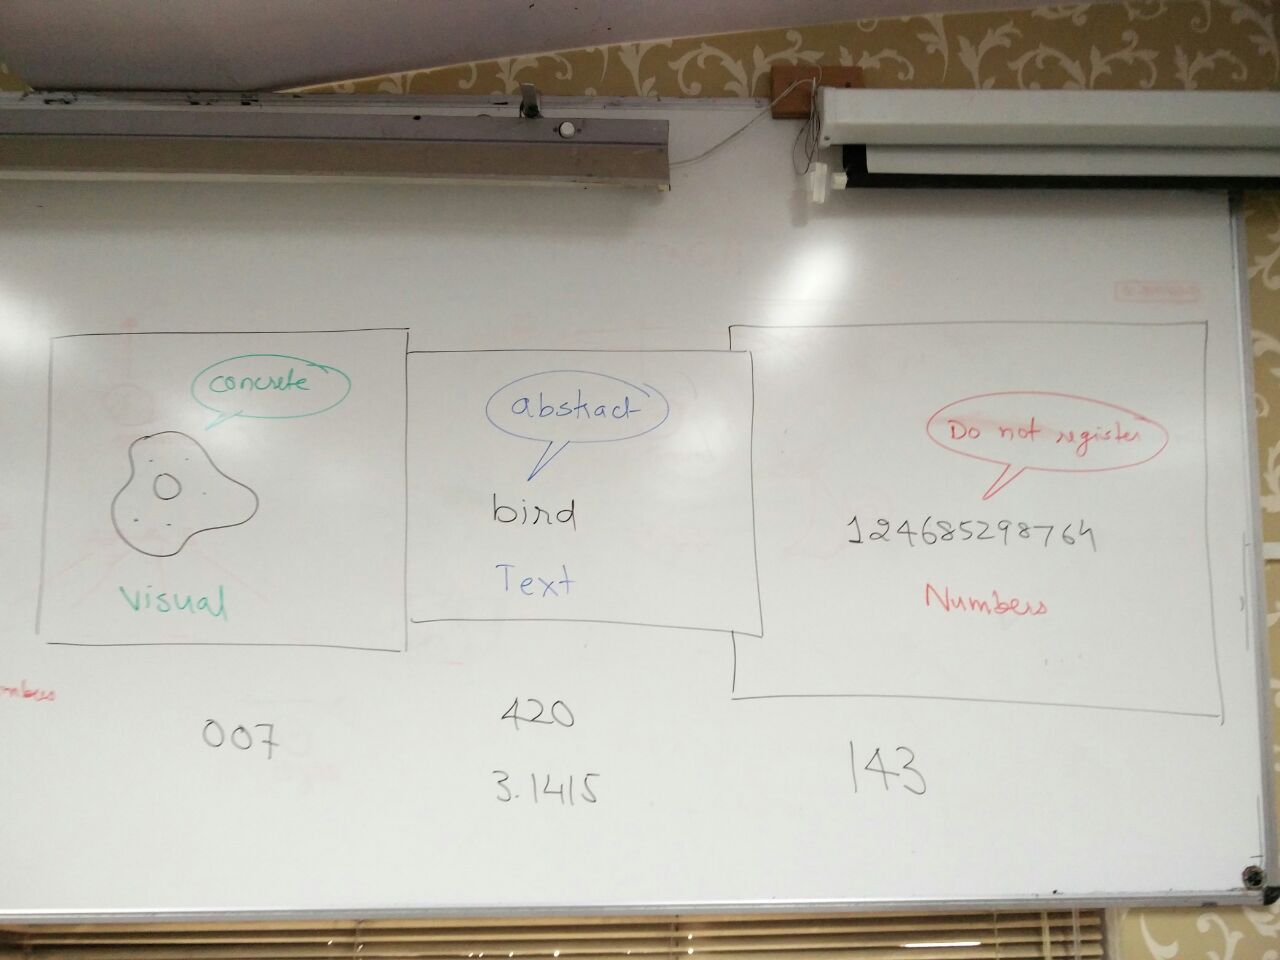 concrete
Visual
abstract
bird
Text
Do not register
124685298764
Numbers
007
420
3.1415
143